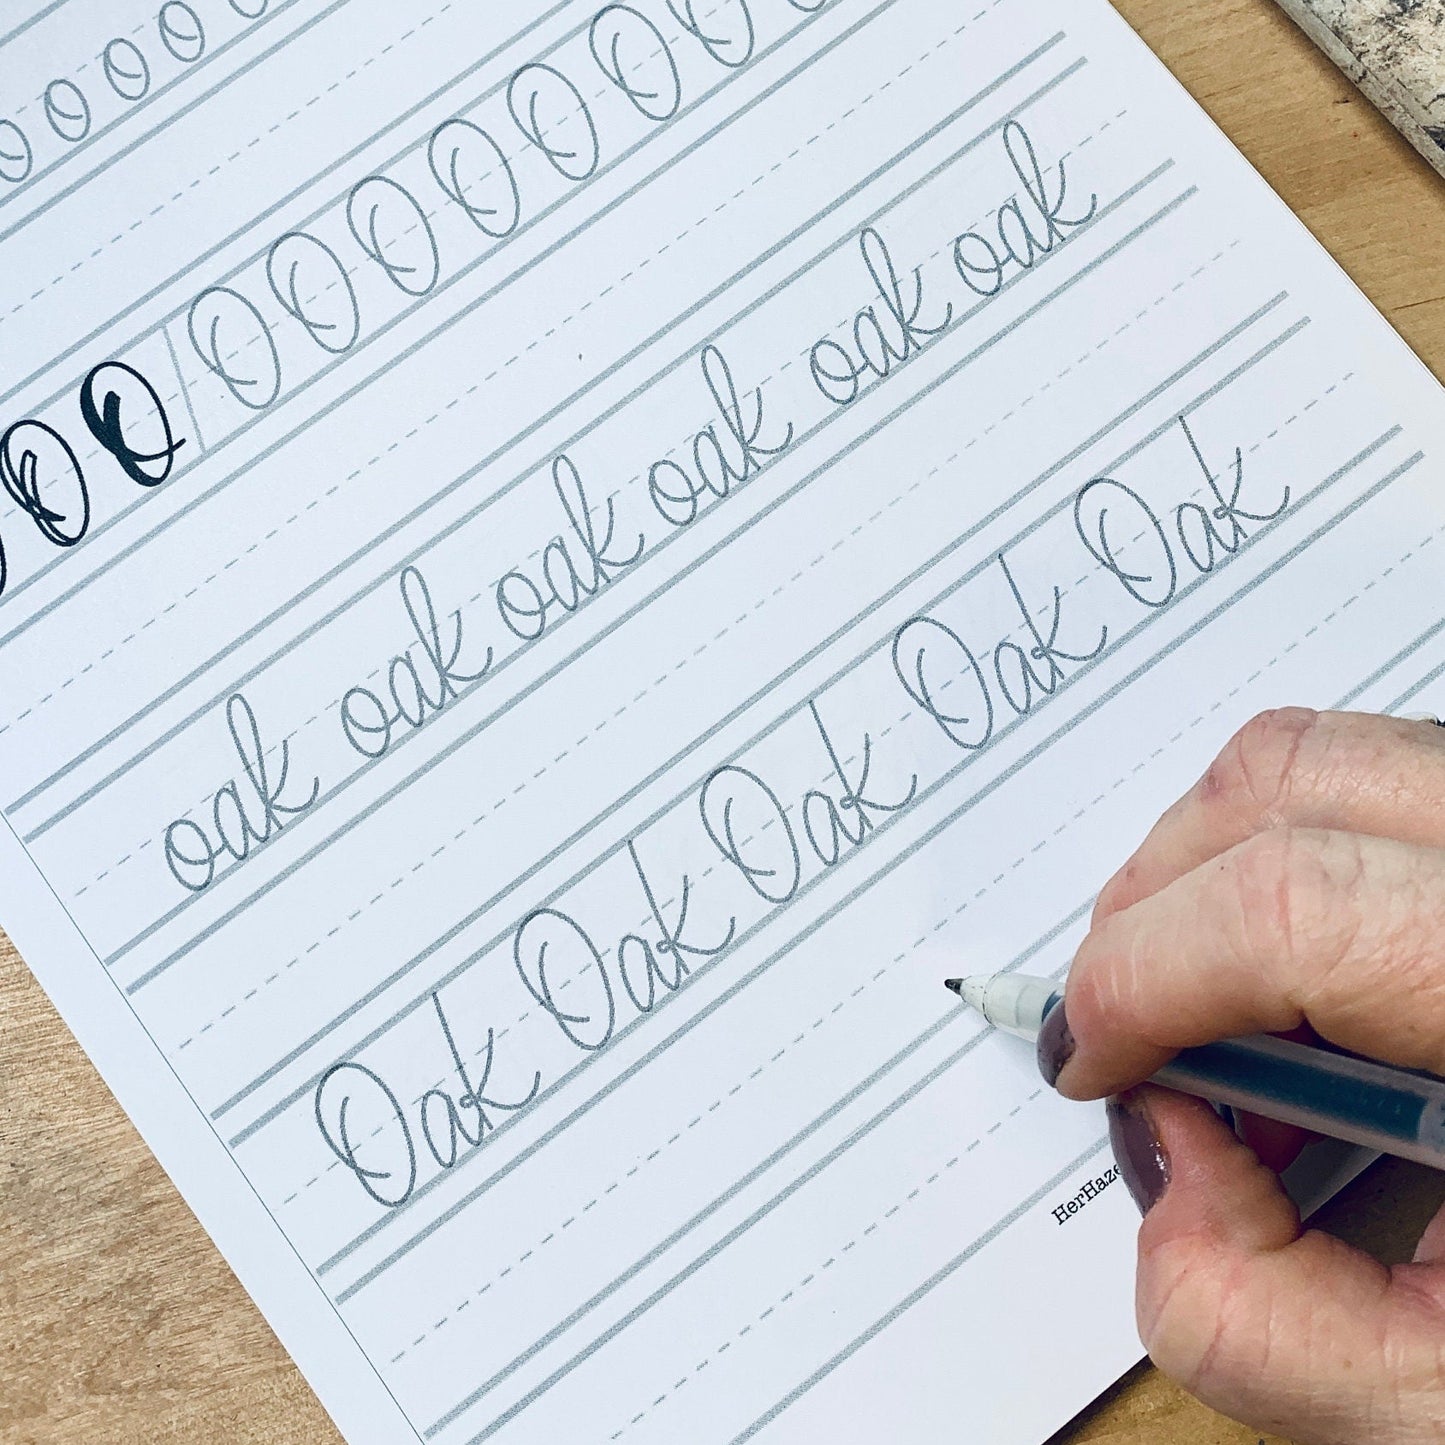 o o o o o
O O O O O O O O O
oak oak oak oak oak oak
Oak Oak Oak Oak Oak
HerHaze